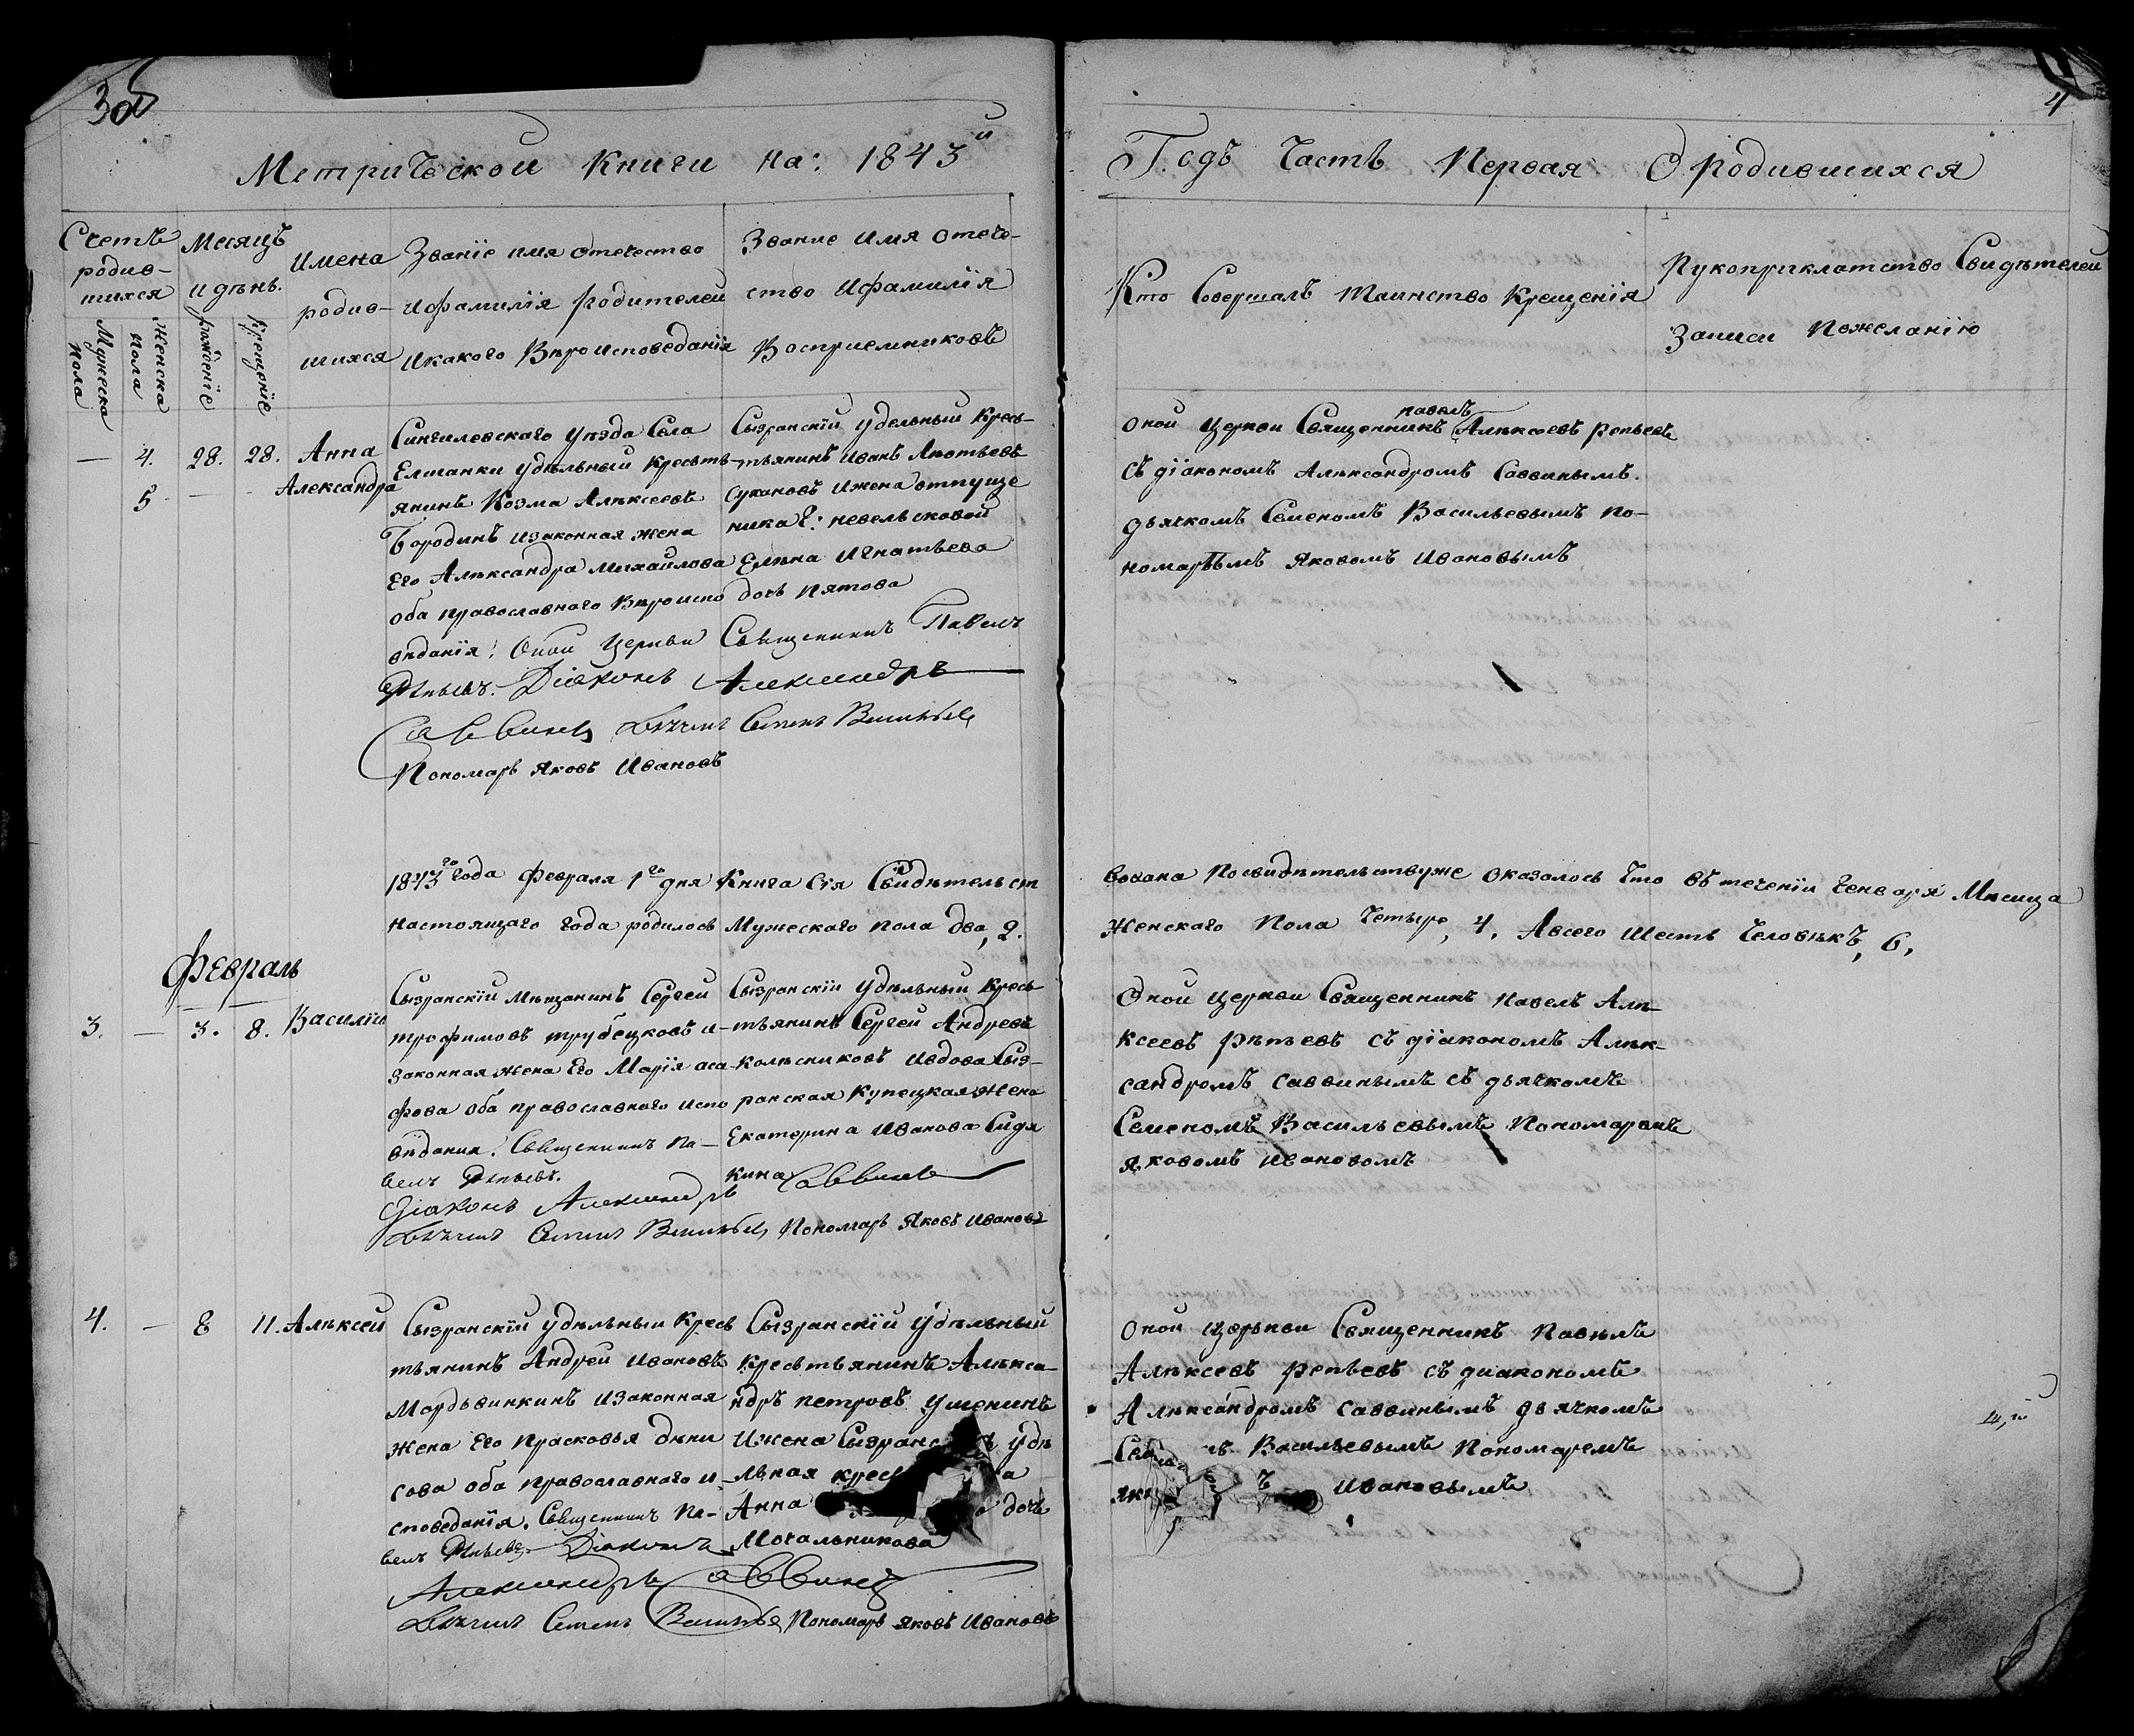 3об
4
Метрической Книги на: 1843й
Годъ Часть Первая О родившихся
Счетъ родив-
шихся
Мужеска пола
Женска пола
Месяцъ
и дѣнь.
рождение
крещение
Имена
родив-
шихся
Званіе имя отечество
и фамилія родителей
и какого Вѣроисповеданія
Звание имя отече-
ство и фамилія
Восприемниковъ
Кто Совершалъ таинство Крещенія
Рукоприклатство Свидѣтелей
Записи Пожеланію
— 4. 28. 28. Анна
5 — — Александра
Сингилевского уѣзда Села
Елшанки удѣльный кресьть-
янинъ Козма Алѣксеевъ
Бородинъ и законная жена
Его Алѣксандра Михайлова
оба православного Вѣроиспо
вѣданія: Оной Церкви Священникъ Павелъ
Рѣпьевъ. Діаконъ Александръ
Саввинъ Дьячекъ Семенъ Васильевъ
Пономарь Яковъ Ивановъ
Сызранскій удельный Кресь-
тьянинъ Иванъ
Сукановъ и жена отпуще
ника Г: невельсковой
Елѣна Игнатьева
дочь Пятова
Оной Церкви Священникъ павелъ Алѣксеевъ репьевъ
Съ діакономъ Алѣксандромъ Саввинымъ.
дьячкомъ Семеномъ Васильевымъ По-
номарѣмъ Яковомъ Ивановымъ
1843го года Февраля 1го дня Книга Сія Свидѣтельст
вована Посвидѣтельствуже оказалось Что въ течении Генваря Мѣсица
Настоящаго года родилось Мужескаго пола два, 2.
Женского Пола Четыре, 4, А всего Шесть Человѣкъ, 6,
Февраль
3. — 3. 8. Василій
Сызранскій Мѣщанинъ Сергей
трофимовъ трубецковъ и-
законная жена Его Марія аса-
фова оба православного испо
вѣдания. Священникъ Па-
велъ Рѣпьевъ.
Діаконъ Александръ Саввинъ
Дьячекъ Семенъ Васильевъ Пономарь Яковъ Ивановъ
Сызранскій Удѣльный кресь
тьянинъ Сергей Андревъ
Колѣсниковъ И вдова Сыз-
ранская Купецкая Жена
Екатерина Иванова Сидя
кина
Оной Церкви Священникъ Павелъ Алѣ-
ксеевъ рѣпьевъ съ діакономъ Алѣк-
сандромъ Саввинымъ съ дьячкомъ
Семеномъ Васильевымъ Пономаремъ
Яковомъ Ивановомъ
4. — 8 11. Алѣксей
Сызранскій удѣльный Кресь
тьянинъ Андрей Ивановъ
Мордвинкинъ и законная
жена Его Прасковья дѣни
сова оба православного и-
споведанія. Священникъ Па-
велъ Рѣпьевъ Діаконъ
Александръ Саввинъ
Дьячекъ Семенъ Васильевъ Пономарь Яковъ Ивановъ
Сызранскій удѣльный
кресьтьянинъ Алѣкса-
ндръ петровъ Ушенинъ
И жена Сызранс удѣ
льная крес
Анна дочь
Мочальникова
Оной Церькви Священникъ Павѣлъ
Алѣксевъ репьевъ съ диакономъ
Алѣксандромъ Саввинымъ дьячкомъ
Васильевымъ Пономаремъ
Ивановымъ